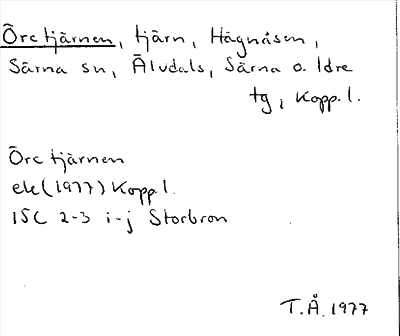 Örtjärnen, tjärn, Hägnåsen,
Särna sn, Älvdals, Särna o. Idre
tg, Kopp. l.
Örtjärnen
ek (1977) Kopp. l.
15C 2-3 i-j Storbron
T.Å. 1977